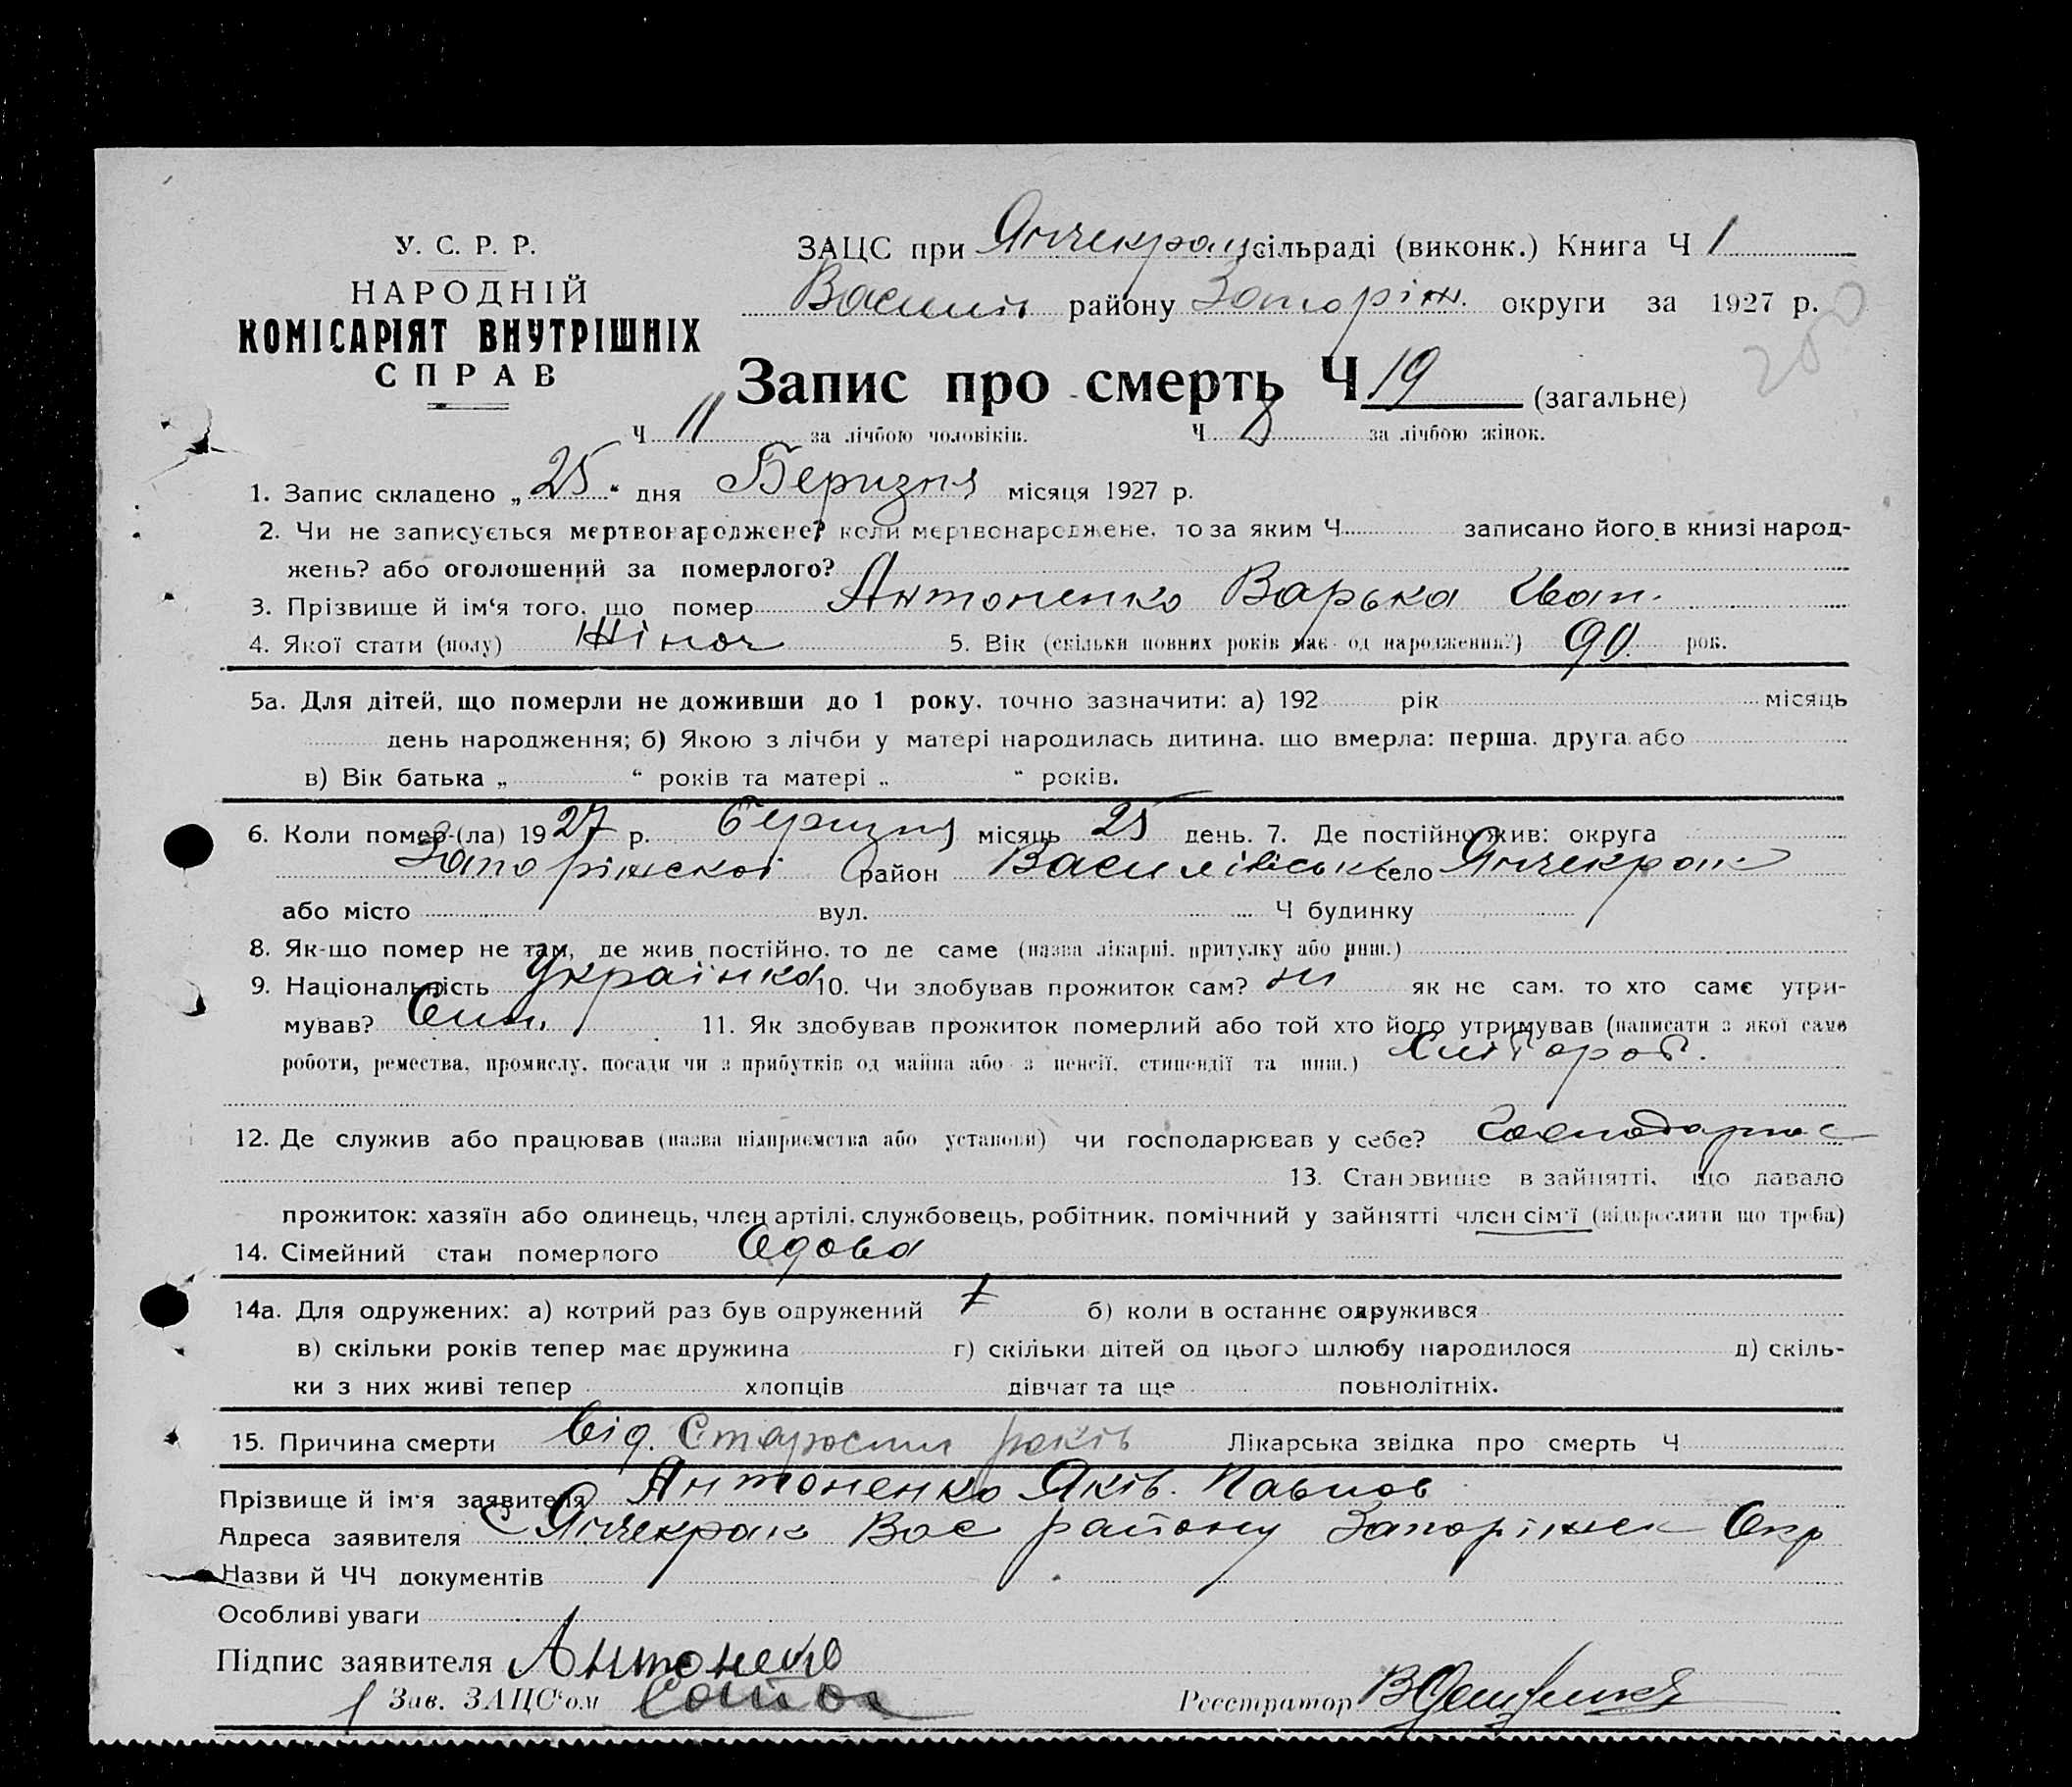 У. С. Р. Р.
НАРОДНІЙ
КОМІСАРІЯТ ВНУТРІШНІХ
СПРАВ
ЗАЦС при Янчекрац сільраді (виконк.) Книга Ч 1
Васил району Запоріж. округи за 1927 р.
Запис про смерть Ч 19 (загальне)
Ч 11 за лічбою чоловіків. Ч 8 за лічбою жінок.
1. Запис складено „ 25 “ дня Беризня місяця 1927 р.
2. Чи не записується мертвонароджене? коли мертвонароджене, то за яким Ч записано його в книзі народ-
жень? або оголошений за померлого?
3. Прізвище й ім‘я того, що помер Антоненко Варька Иван.
4. Якої стати (полу) Жіноч 5. Вік (скільки повних років має од народження?) 90 рок.
5а. Для дітей, що померли не доживши до 1 року, точно зазначити: а) 192 рік місяць
день народження; б) Якою з лічби у матері народилась дитина, що вмерла: перша, друга або
в) Вік батька „ “ років та матері „ “ років.
6. Коли помер-(ла) 1927 р. беризня місяць 25 день. 7. Де постійно жив: округа
Запоріжскої район Василівськ село Янчекрак
або місто вул. Ч будинку
8. Як-що помер не там, де жив постійно, то де саме (назва лікарні, притулку або инш.)
9. Національність українка 10. Чи здобував прожиток сам? ні як не сам, то хто саме утри-
мував? Син. 11. Як здобував прожиток померлий або той хто його утримував (написати з якої саме
роботи, ремества, промислу, посади чи з прибутків од майна або з пенсії, стипендії та инш.) Хлібороб.
12. Де служив або працював (назва підприємства або установи) чи господарював у себе? Господарює
13. Становище в зайнятті, що давало
прожиток: хазяїн або одинець, член артілі, службовець, робітник, помічний у зайнятті член сім‘ї (підкреслити що треба)
14. Сімейний стан померлого Вдова
14а. Для одружених: а) котрий раз був одружений б) коли в останнє одружився
в) скільки років тепер має дружина г) скільки дітей од цього шлюбу народилося д) скіль-
ки з них живі тепер хлопців дівчат та ще повнолітніх.
15. Причина смерти від. Старости років Лікарська звідка про смерть Ч
Прізвище й ім‘я заявителя Антоненко Яків. Павлов
Адреса заявителя С Янчекрак Вас району Запоріжск Окр
Назви й ЧЧ документів
Особливі уваги
Підпис заявителя Антоненко
Зав. ЗАЦС‘ом
Реєстратор